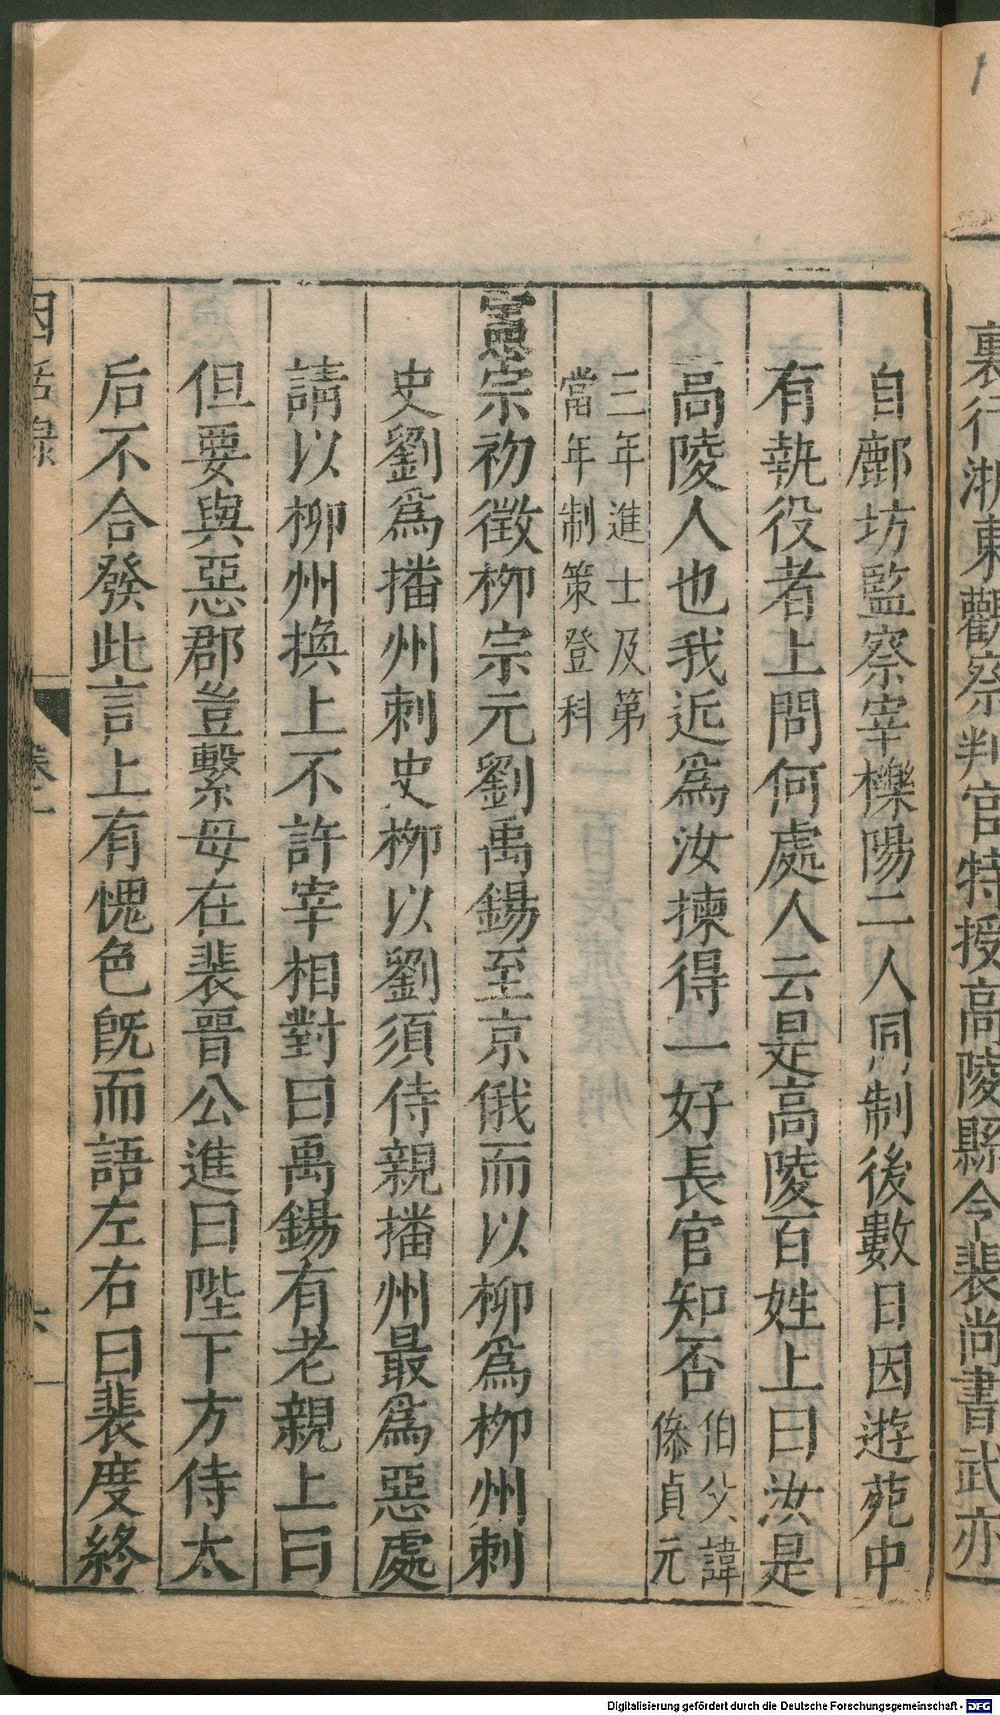 裏行浙東觀察判官特授高陵縣令裴尚書武亦
自鄜坊監察宰櫟陽二人同制後數日因遊苑中
有執役者上問何處人云是高陵百姓上曰汝是
高陵人也我近爲汝揀得一好長官知否伯父諱
傪貞元
三年進士及第
當年制策登科
憲宗初徵柳宗元劉禹錫至京俄而以柳爲柳州刺
史劉爲播州刺史柳以劉須侍親播州最爲惡處
請以柳州換上不許宰相對曰禹錫有老親上曰
但要與惡郡豈繫母在裴晉公進曰陛下方侍太
后不合發此言上有愧色旣而語左右曰裴度終
因話錄
卷一
六
Digitalisierung gefördert durch die Deutsche Forschungsgemeinschaft - DFG